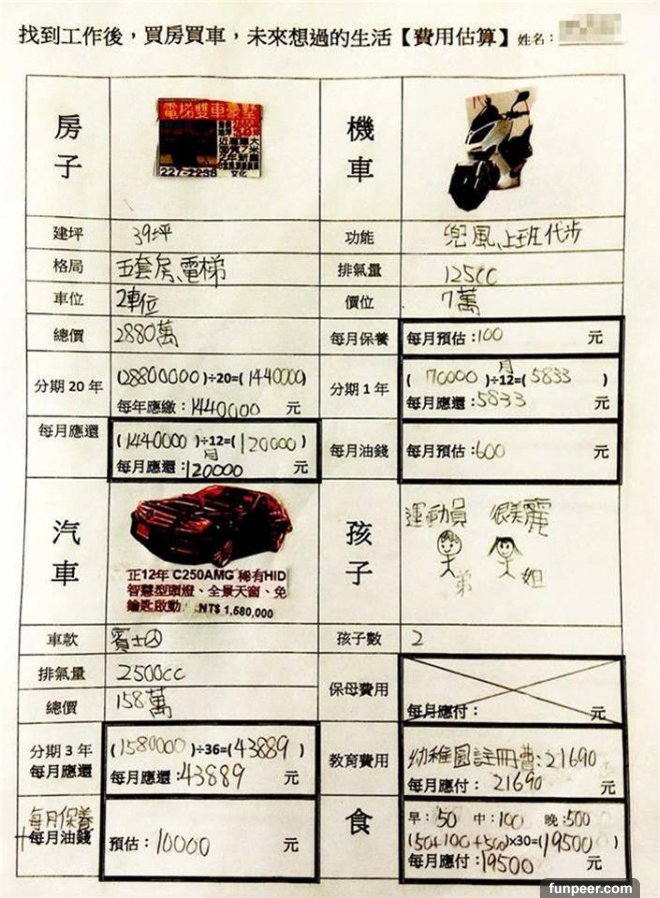 找到工作後，買房買車，未來想過的生活【費用估算】姓名：
房子
227-2238
機車
建坪 39坪
功能 兜風、上班代步
格局 五套房、電梯
排氣量 125cc
車位 2車位
價位 7萬
總價 2880萬
每月保養 每月預估：100 元
分期 20 年 (28800000)÷20=(1440000)
每年應繳：1440000 元
分期 1 年 (70000)÷12月=(5833)
每月應還：5833 元
每月應還 (1440000)÷12月=(120000)
每月應還：120000 元
每月油錢 每月預估：600 元
汽車
正12年 C250AMG 稀有HID
智慧型頭燈、全景天窗、免
鑰匙啟動 NT$ 1,580,000
孩子
運動員 很美麗
弟 姐
車款 賓士
孩子數 2
排氣量 2500cc
保母費用 每月應付： 元
總價 158萬
分期 3 年 (1580000)÷36=(43889)
每月應還 每月應還：43889 元
教育費用 幼稚園註冊費：21690
每月應付：21690 元
每月保養
+每月油錢 預估：10000 元
食
早：50 中：100 晚：500
(50+100+500)x30=(19500)
每月應付：19500 元
funpeer.com